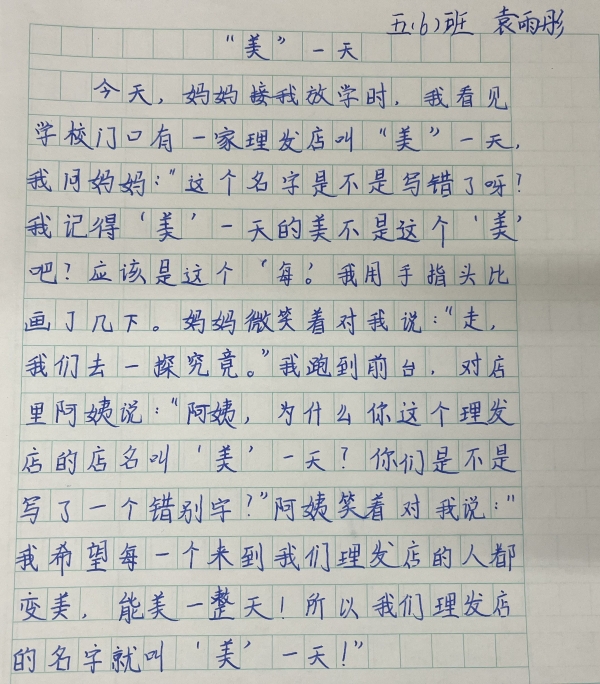 五(6)班 袁雨彤
“美”一天
今天，妈妈接我放学时，我看见
学校门口有一家理发店叫“美”一天，
我问妈妈：“这个名字是不是写错了呀？
我记得‘美’一天的美不是这个‘美’
吧？应该是这个‘每’。我用手指头比
画了几下。妈妈微笑着对我说：“走，
我们去一探究竟。”我跑到前台，对店
里阿姨说：“阿姨，为什么你这个理发
店的店名叫‘美’一天？你们是不是
写了一个错别字？”阿姨笑着对我说：“
我希望每一个来到我们理发店的人都
变美，能美一整天！所以我们理发店
的名字就叫‘美’一天！”